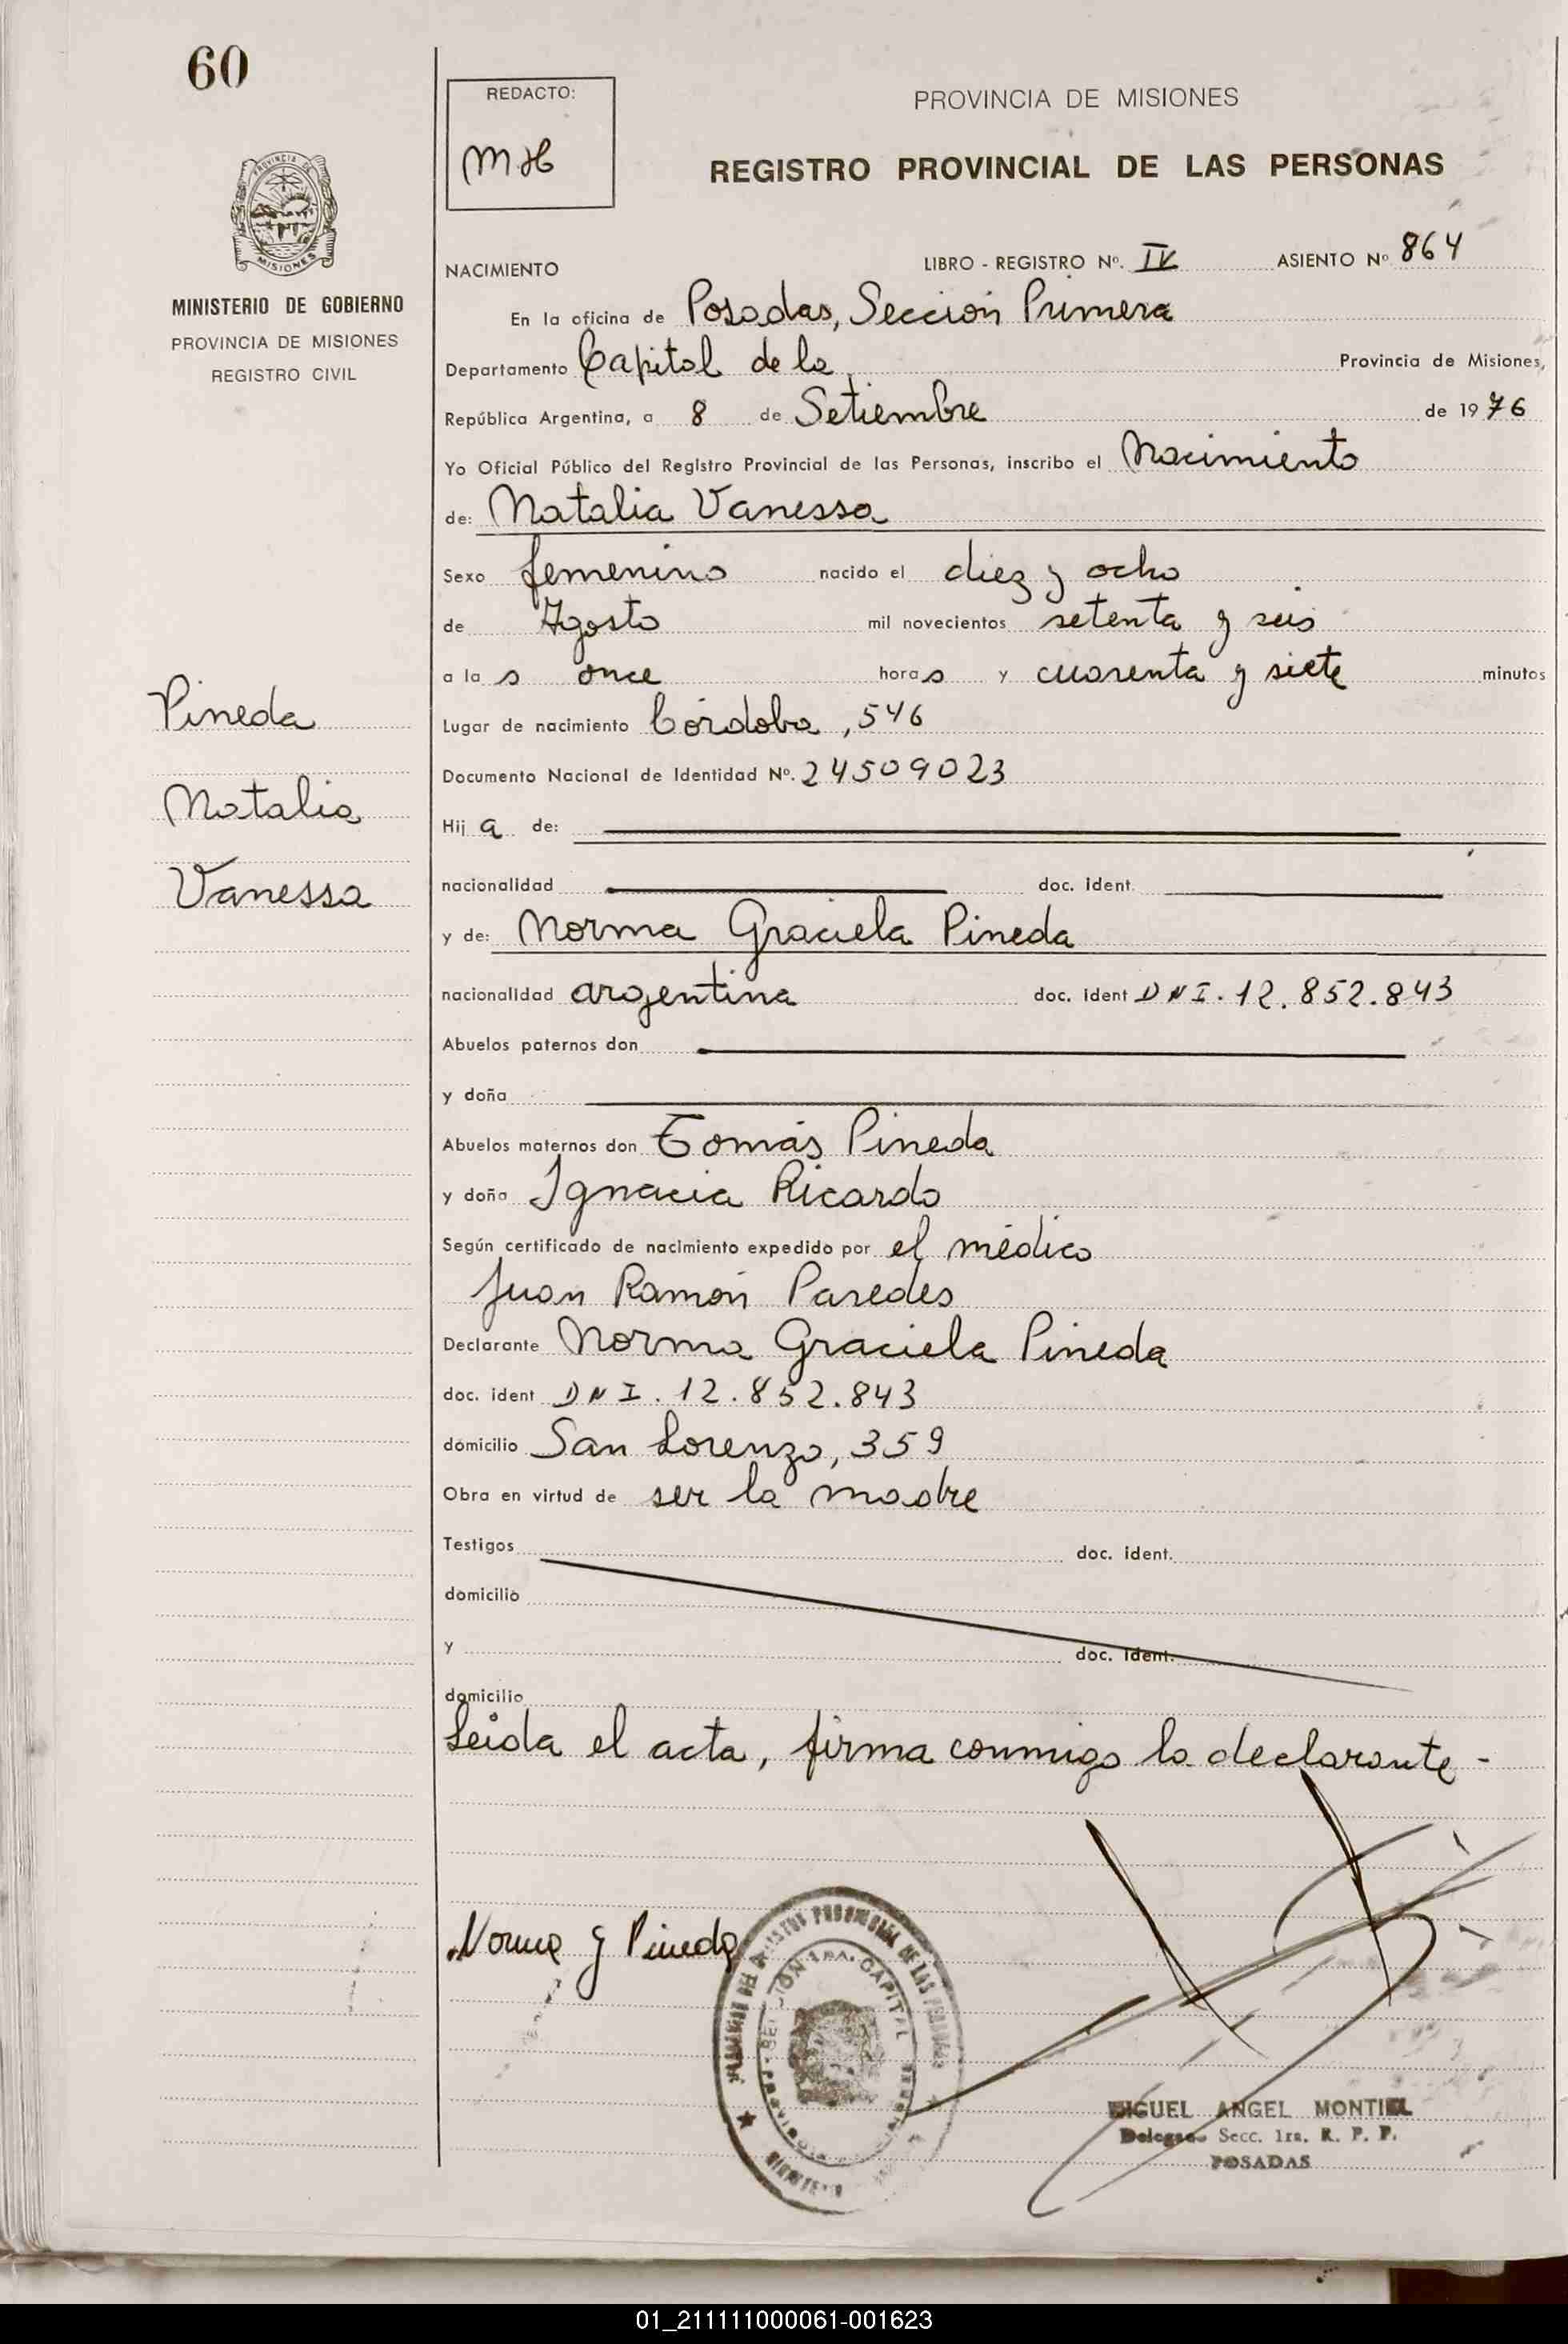 60
REDACTO:
M.H
PROVINCIA DE MISIONES
REGISTRO PROVINCIAL DE LAS PERSONAS
PROVINCIA DE
MISIONES
MINISTERIO DE GOBIERNO
PROVINCIA DE MISIONES
REGISTRO CIVIL
NACIMIENTO LIBRO - REGISTRO Nº. IV ASIENTO Nº 864
En la oficina de Posadas, Sección Primera
Departamento Capital de la Provincia de Misiones,
República Argentina, a 8 de Setiembre de 1976
Yo Oficial Público del Registro Provincial de las Personas, inscribo el Nacimiento
de: Natalia Vanessa
Sexo femenino nacido el diez y ocho
de Agosto mil novecientos setenta y seis
a la s once horas y cuarenta y siete minutos
Pineda
Natalia
Vanessa
Lugar de nacimiento Córdoba, 546
Documento Nacional de Identidad Nº. 24509023
Hij a de:
nacionalidad doc. ident.
y de: Norma Graciela Pineda
nacionalidad argentina doc. ident DNI. 12.852.843
Abuelos paternos don
y doña
Abuelos maternos don Tomás Pineda
y doña Ignacia Ricardo
Según certificado de nacimiento expedido por el médico
Juan Ramón Paredes
Declarante Norma Graciela Pineda
doc. ident DNI. 12.852.843
domicilio San Lorenzo, 359
Obra en virtud de ser la madre
Testigos doc. ident.
domicilio
y doc. ident.
domicilio
Leida el acta, firma conmigo la declarante-
Norma G Pineda
CAPITAL
MIGUEL ANGEL MONTIEL
Secc. 1ra. R. P. P.
POSADAS
01_211111000061-001623